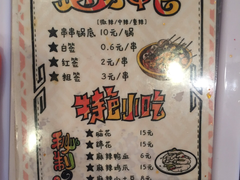 (微辣/中辣/重辣)
★ 串串锅底 10元/锅
★ 白签 0.6元/串
★ 红签 2元/串
★ 粗签 3元/串
特色小吃
秘制
★ 脑花 15元
★ 蹄花 15元
★ 麻辣鸭血 6元
★ 麻辣鸡爪 15元